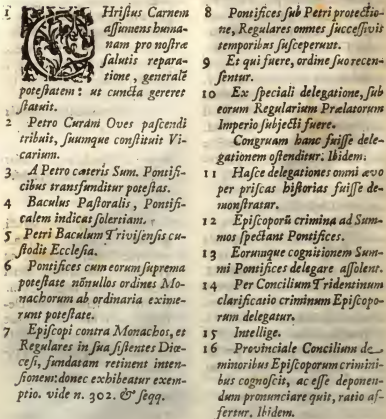 1 CHristus Carnem
assumens huma-
nam pro nostræ
salutis repara-
tione, generalẽ
potestatem: ut cuncta gereret
statuit.
2 Petro Curam Oves pascendi
tribuit, suumque constituit Vi-
carium.
3 A Petro cæteris Sum. Pontifi-
cibus transfunditur potestas.
4 Baculus Pastoralis, Pontifi-
calem indicat solertiam.
5 Petri Baculum Trivisensis cu-
stodit Ecclesia.
6 Pontifices cum eorum suprema
potestate nõnullos ordines Mo-
nachorum ab ordinaria exime-
runt potestate.
7 Episcopi contra Monachos, et
Regulares in sua sistentes Diœ-
cesi, fundatam retinent inten-
sionem: donec exhibeatur exem-
ptio. vide n. 302. & seqq.
8 Pontifices sub Petri protectio-
ne, Regulares omnes successivis
temporibus susceperunt.
9 Et qui fuere, ordine suo recen-
sentur.
10 Ex speciali delegatione, sub
eorum Regularium Prælatorum
Imperio subjecti fuere.
Congruam hanc fuisse dele-
gationem ostenditur. Ibidem.
11 Hasce delegationes omni ævo
per priscas historias fuisse de-
monstratur.
12 Episcoporũ crimina ad Sum-
mos spectant Pontifices.
13 Eorumque cognitionem Sum-
mi Pontifices delegare assolent.
14 Per Concilium Tridentinum
clarificatio criminum Episcopo-
rum delegatur.
15 Intellige.
16 Provinciale Concilium de
minoribus Episcoporum crimini-
bus cognoscit, ac esse deponen-
dum pronunciare quit, ratio af-
fertur. Ibidem.